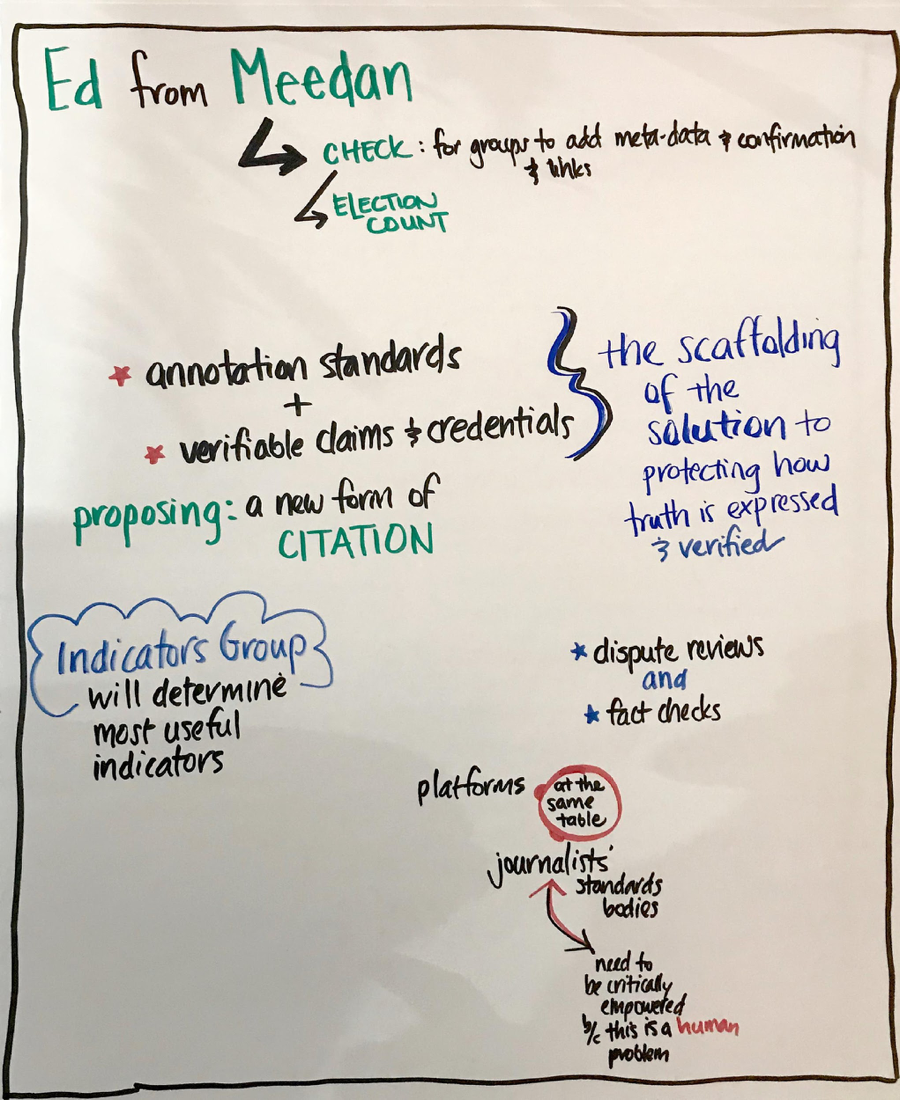 Ed from Meedan
CHECK: for groups to add meta-data & confirmation
& links
ELECTION
COUNT
annotation standards
+
verifiable claims & credentials
the scaffolding
of the
solution to
protecting how
truth is expressed
& verified
proposing: a new form of
CITATION
Indicators Group
will determine
most useful
indicators
dispute reviews
and
fact checks
platforms
at the
same
table
journalists'
standards
bodies
need to
be critically
empowered
b/c this is a human
problem